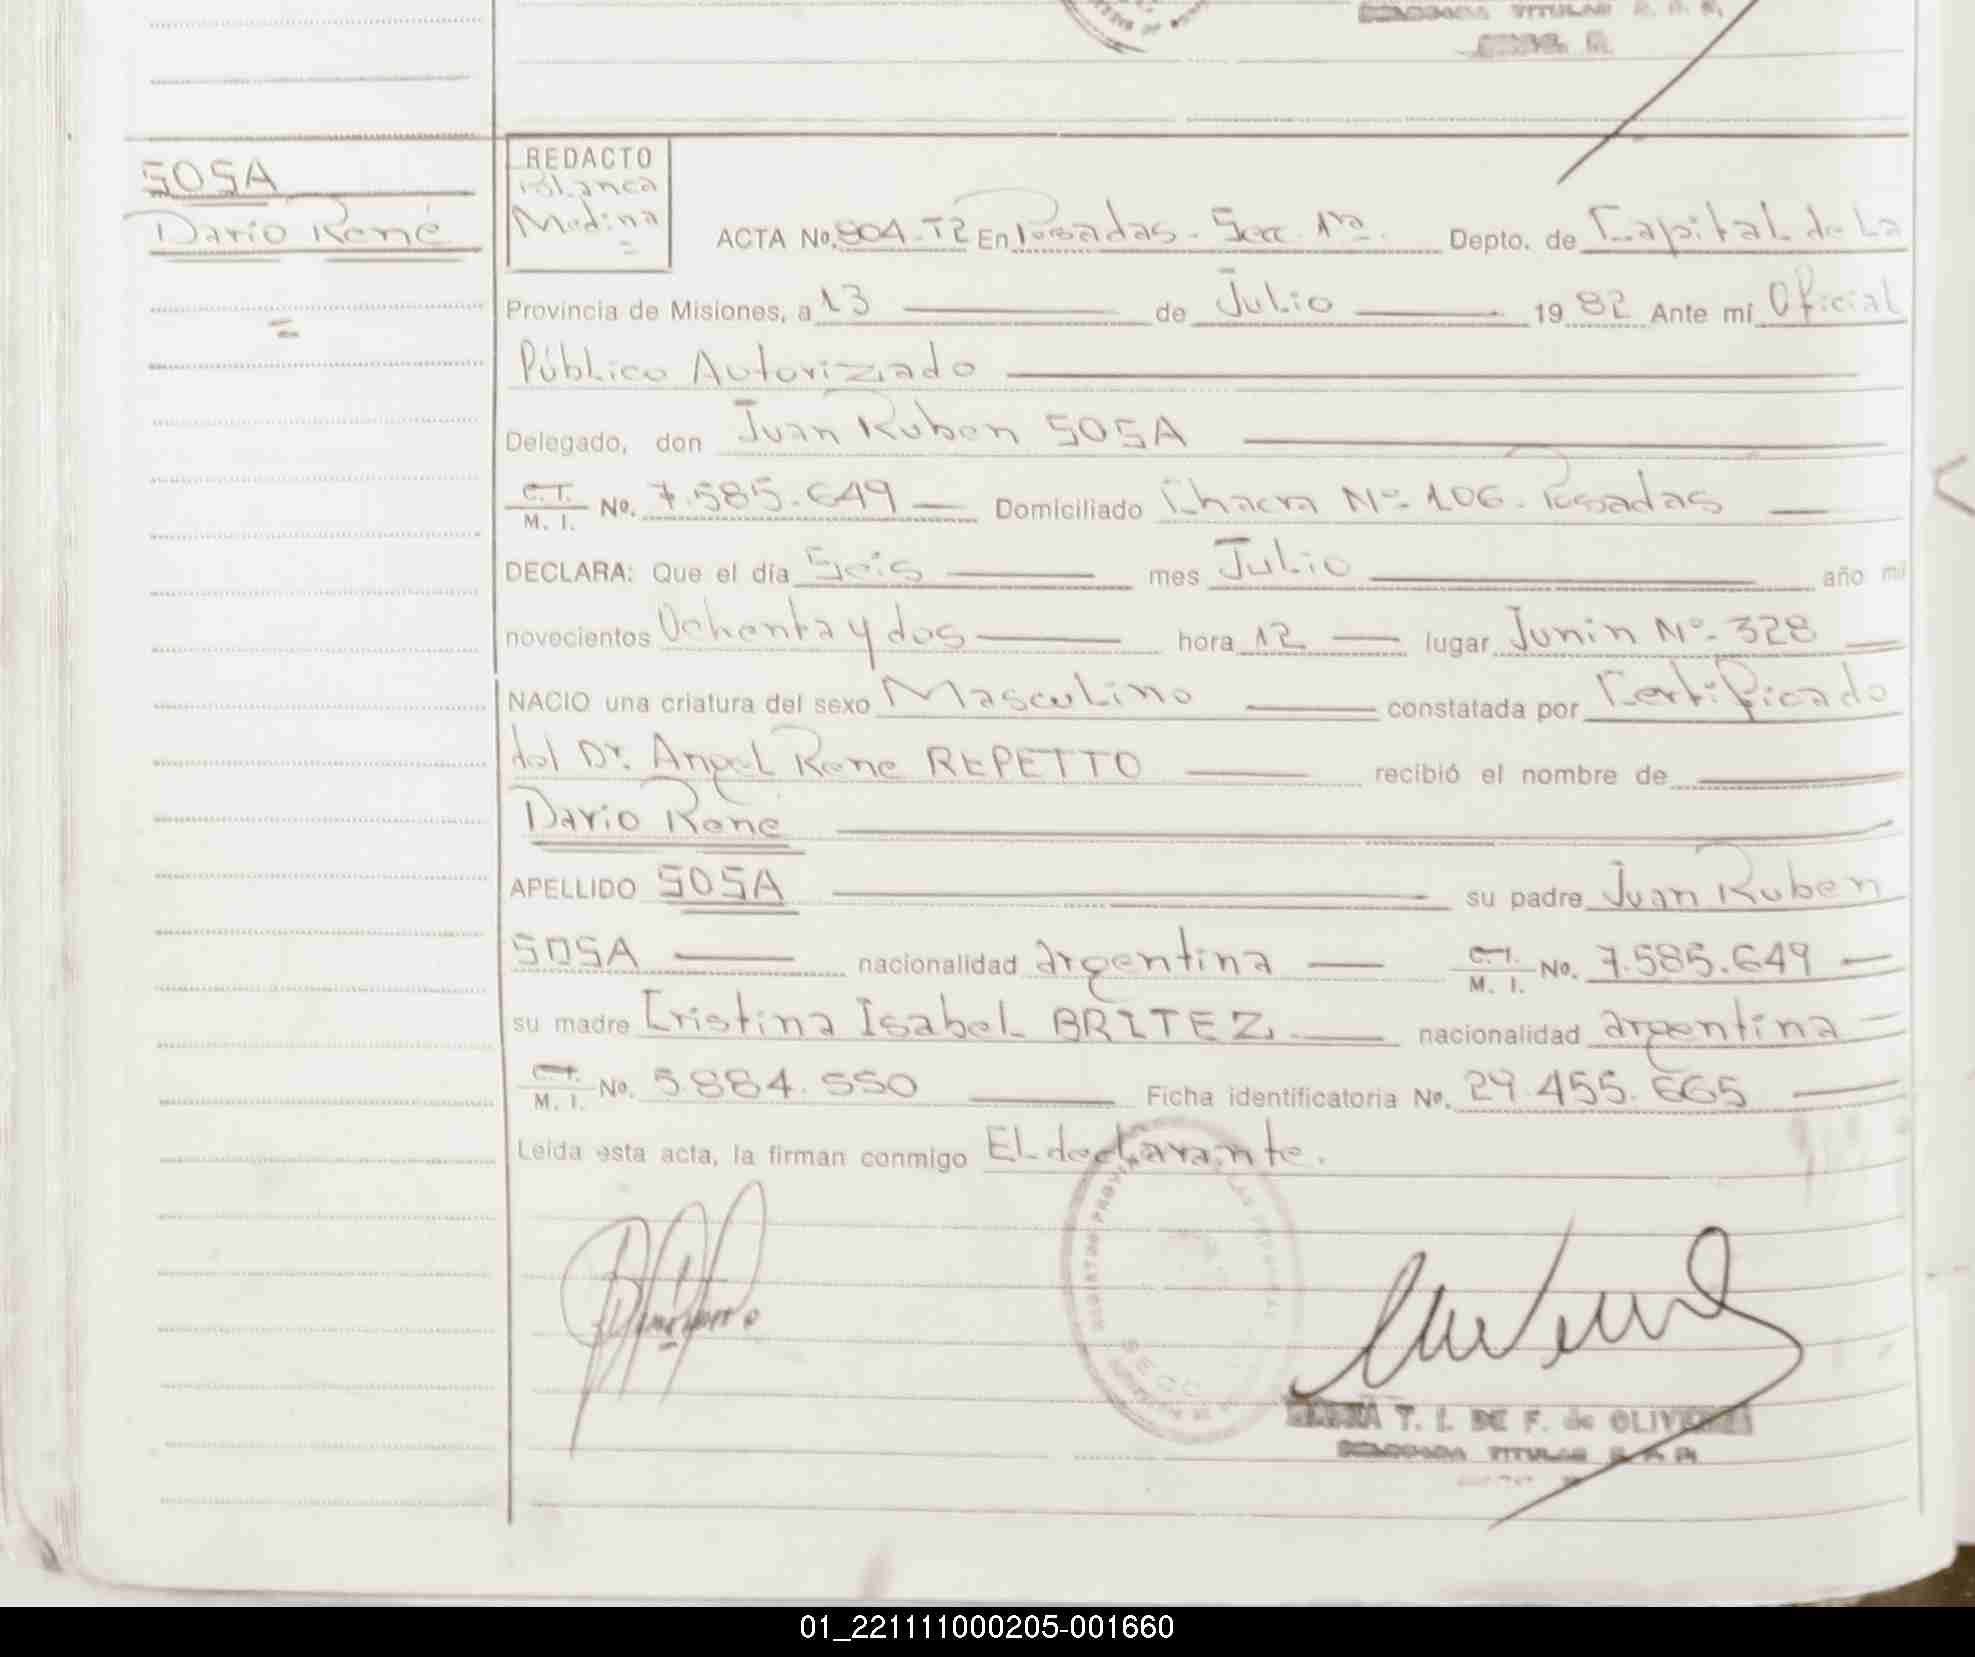 DELEGADA TITULAR R. P.
SOSA
Dario René
REDACTO
Blanca
Medina
ACTA No. 904-T2 En Posadas - Secc. 1ra. Depto. de Capital de La
Provincia de Misiones, a 13 de Julio 19 82 Ante mí Oficial
Público Autorizado
Delegado, don Juan Ruben SOSA
C.I.
M. I. No. 7.585.649 Domiciliado Chacra Nº 106. Posadas
DECLARA: Que el día Seis mes Julio año mi
novecientos Ochenta y dos hora 12 lugar Junin Nº 328
NACIO una criatura del sexo Masculino constatada por Certificado
del Dr. Angel Rene REPETTO recibió el nombre de
Dario René
APELLIDO SOSA su padre Juan Ruben
SOSA nacionalidad argentina C.I. M. I. No. 7.585.649
su madre Cristina Isabel BRITEZ. nacionalidad argentina
C.I.
M. I. No. 5.884.550 Ficha identificatoria No. 29.455.665
Leída esta acta, la firman conmigo El declarante.
T. I. DE F. de OLIVEIRA
DELEGADA TITULAR
01_221111000205-001660